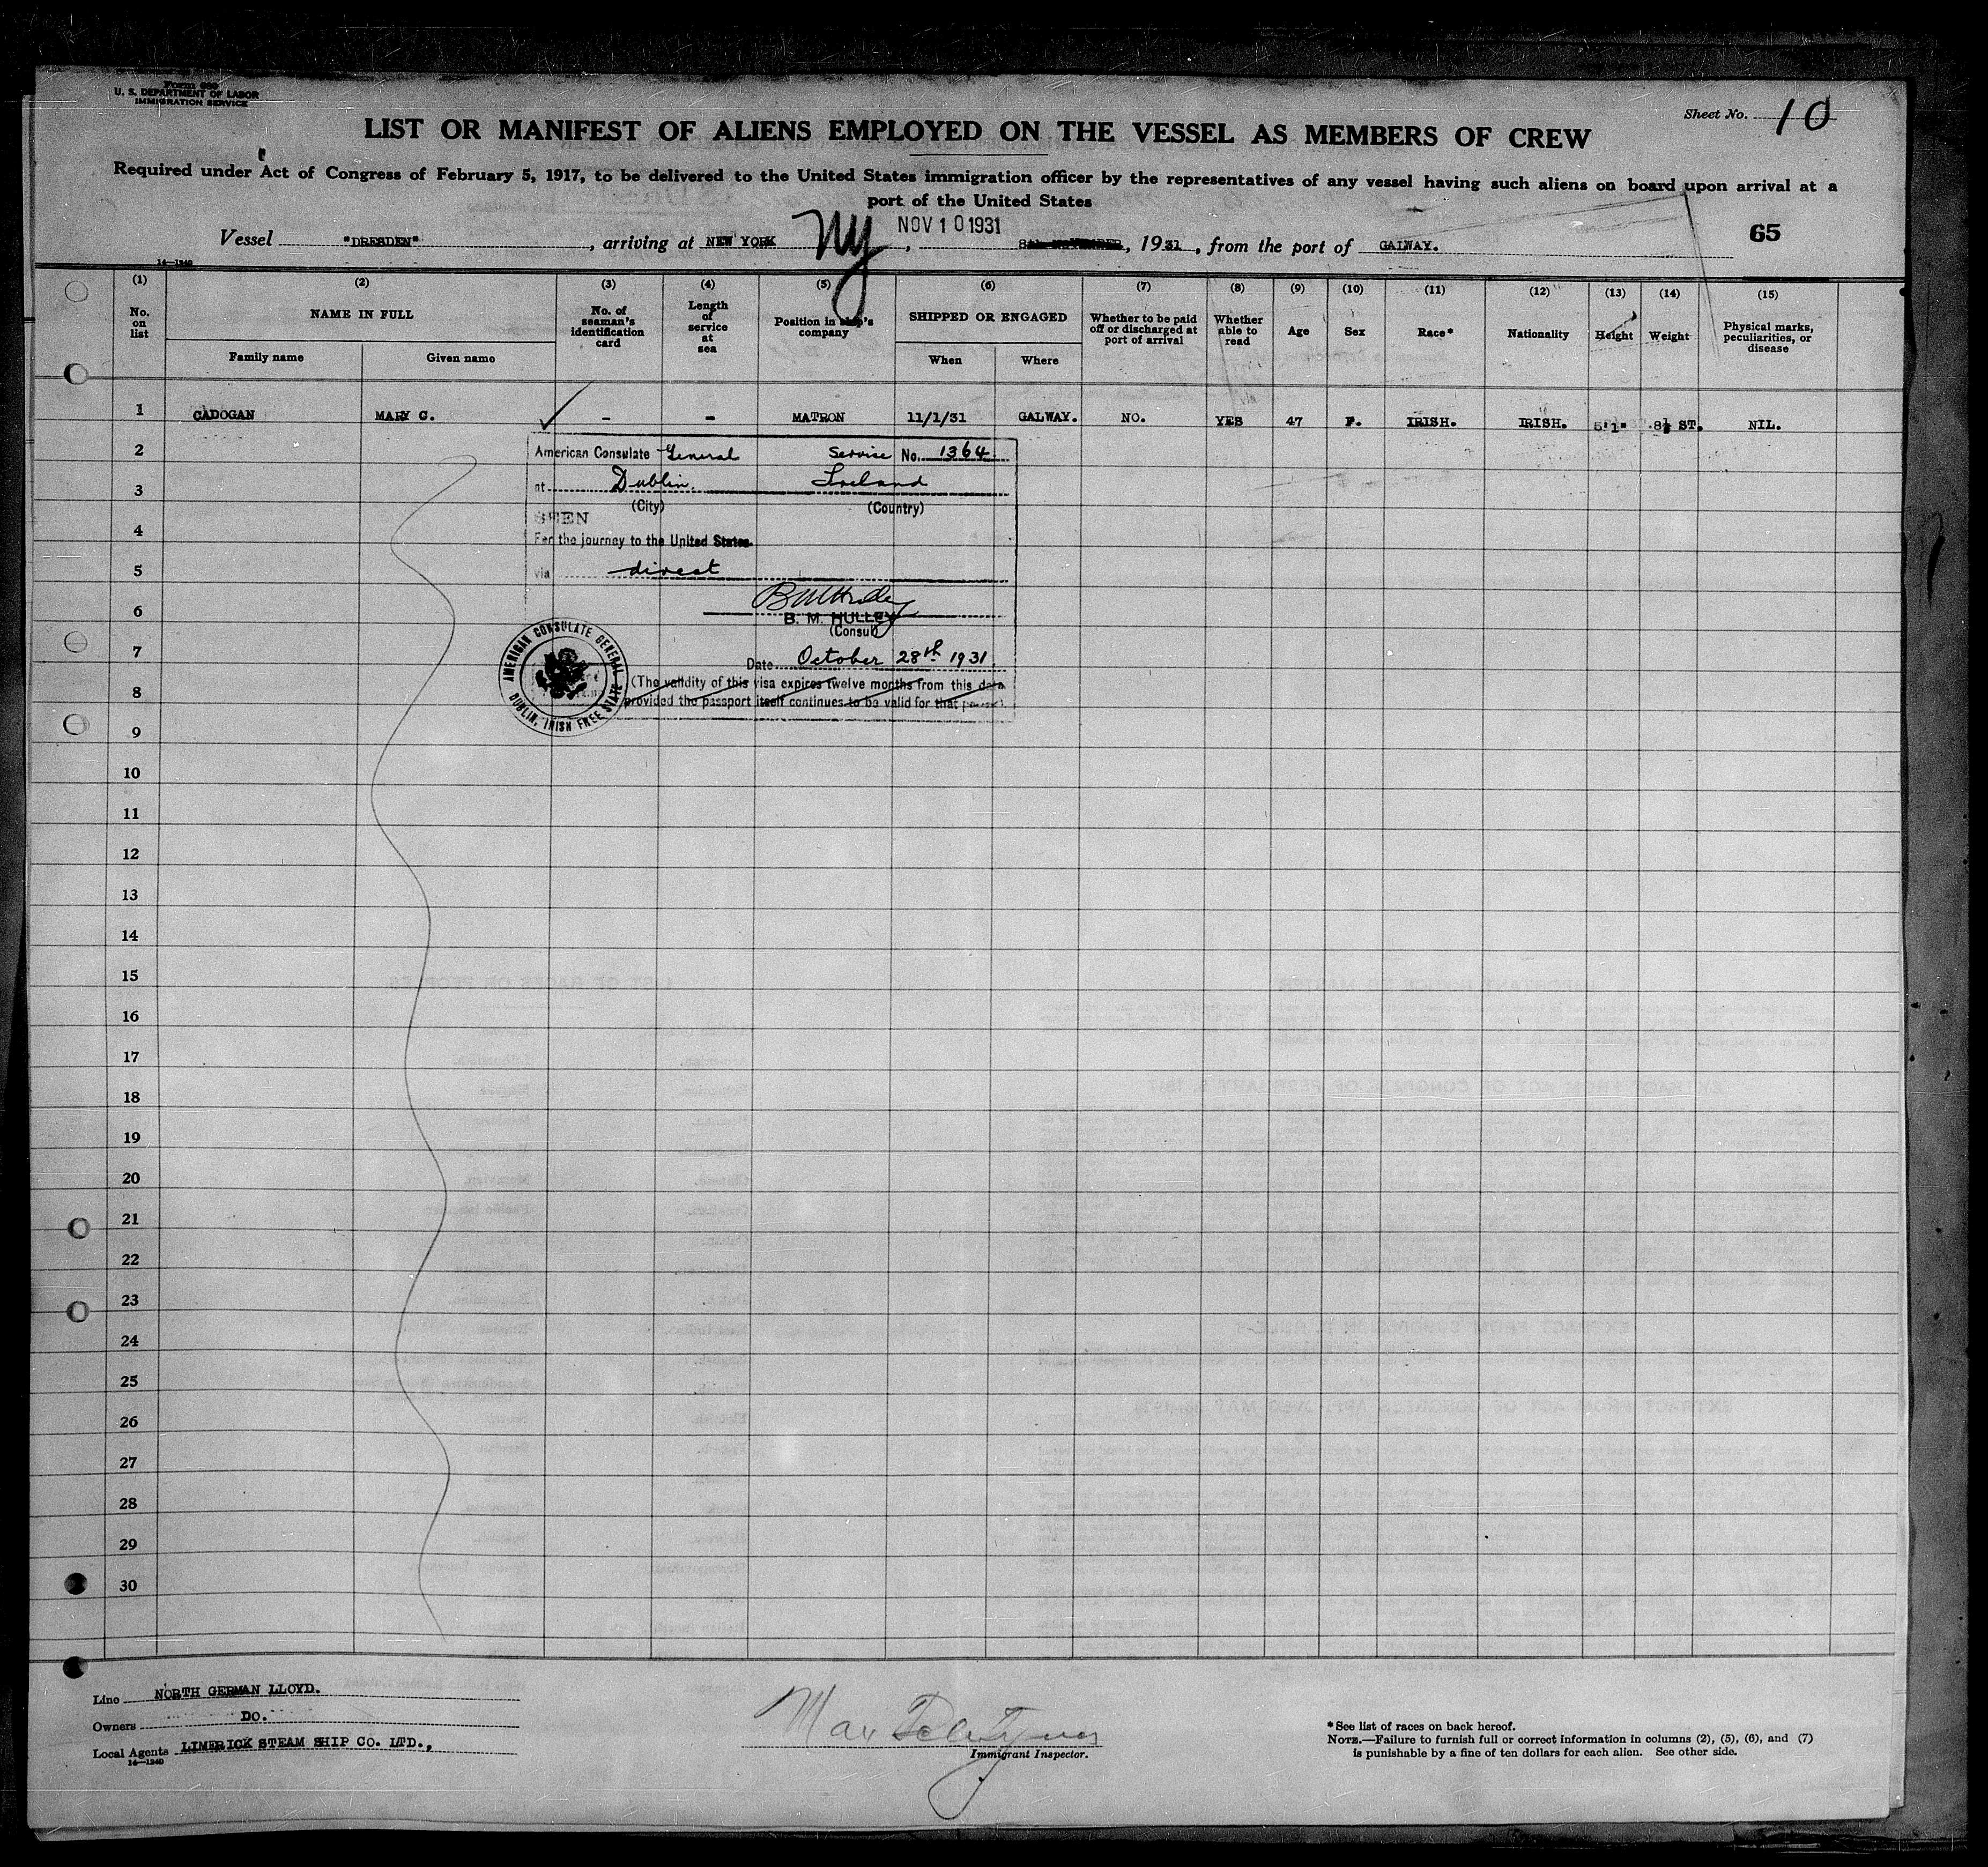 Form 689
U. S. DEPARTMENT OF LABOR
IMMIGRATION SERVICE
Sheet No. 10
LIST OR MANIFEST OF ALIENS EMPLOYED ON THE VESSEL AS MEMBERS OF CREW
Required under Act of Congress of February 5, 1917, to be delivered to the United States immigration officer by the representatives of any vessel having such aliens on board upon arrival at a
port of the United States
Vessel "DRESDEN", arriving at NEW YORK NY, NOV 10 1931 8th NOVEMBER, 1931, from the port of GALWAY.
65
14—1240
(1) (2) (3) (4) (5) (6) (7) (8) (9) (10) (11) (12) (13) (14) (15)
No. on list
NAME IN FULL
Family name
Given name
No. of seaman's identification card
Length of service at sea
Position in ship's company
SHIPPED OR ENGAGED
When
Where
Whether to be paid off or discharged at port of arrival
Whether able to read
Age
Sex
Race*
Nationality
Height
Weight
Physical marks, peculiarities, or disease
1 CADOGAN MARY C. ✓ - - MATRON 11/1/31 GALWAY. NO. YES 47 F. IRISH. IRISH. 5'1" 8½ ST. NIL.
2
3
4
5
6
7
8
9
10
11
12
13
14
15
16
17
18
19
20
21
22
23
24
25
26
27
28
29
30
American Consulate General Service No. 1364
at Dublin, Ireland
(City) (Country)
SEEN
For the journey to the United States
via direct
B. M. HULLEY
(Consul)
Date October 28th 1931
(The validity of this visa expires twelve months from this date
provided the passport itself continues to be valid for that period).
AMERICAN CONSULATE GENERAL
DUBLIN, IRISH FREE STATE
Line NORTH GERMAN LLOYD.
Owners DO.
Local Agents LIMERICK STEAM SHIP CO. LTD.,
14—1240
Max
Immigrant Inspector.
*See list of races on back hereof.
NOTE.—Failure to furnish full or correct information in columns (2), (5), (6), and (7)
is punishable by a fine of ten dollars for each alien. See other side.